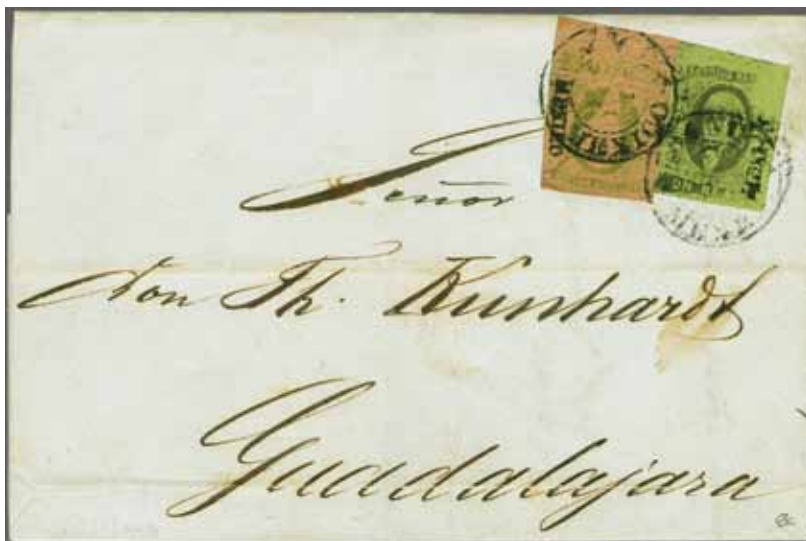 MEXICO
Señor
don Th. Kunhardt
Guadalajara